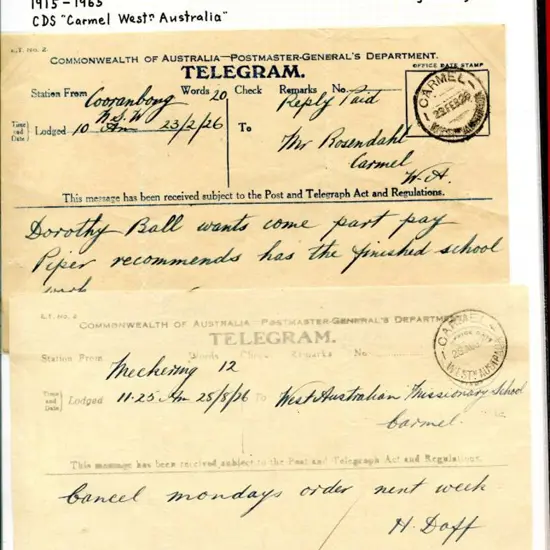 1915-1965
CDS "Carmel Westn Australia"
E.T. NO. 2
COMMONWEALTH OF AUSTRALIA—POSTMASTER-GENERAL'S DEPARTMENT.
TELEGRAM.
OFFICE DATE STAMP
Station From Cooranbong Words 20 Check Remarks No.
N.S.W Reply Paid
CARMEL
23 FEB 26
Time and Date } Lodged 10 Am 23/2/26 To Mr Rosendahl
Carmel
W.A.
This message has been received subject to the Post and Telegraph Act and Regulations.
Dorothy Ball wants come part pay
Piper recommends has the finished school
E.T. No. 2
COMMONWEALTH OF AUSTRALIA POSTMASTER-GENERAL'S DEPARTMENT
TELEGRAM.
Station From Words Remarks No.
CARMEL
WESTN AUSTRALIA
Meckering 12
Time and Date } Lodged 11.25 Am 25/8/26 To West Australian Missionary School
Carmel.
This message has been received subject to the Post and Telegraph Act and Regulations.
Cancel mondays order next week
H. Doff